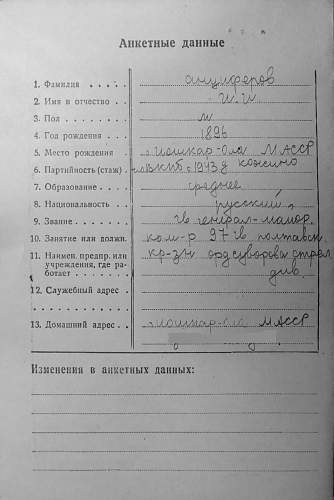 Анкетные данные
1. Фамилия . . . . . анциферов
2. Имя и отчество . . И. И.
3. Пол . . . . . . . м
4. Год рождения . . . 1896
5. Место рождения г. йошкар-ола МАССР
6. Партийность (стаж) . ВКПб с 1943 д кожино
7. Образование . . . среднее
8. Национальность . . русский
9. Звание . . . . . . . гв генерал-майор
10. Занятие или должн. ком-р 97 гв полтавск
11. Наимен. предпр. или кр-зн суворова стрел
учреждения, где ра-
ботает . . . . . . . . див.
12. Служебный адрес .
13. Домашний адрес . . г. йошкар-ола МАССР
Изменения в анкетных данных: